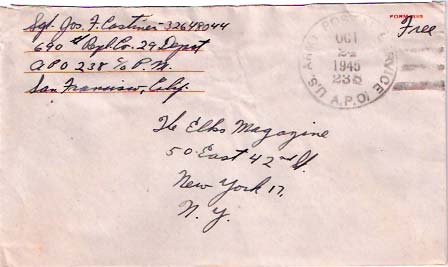 Sgt. Jos. F. Castiner - 32648044
690th Repl. Co. 29 Depot
APO 238 c/o P.M.
San Francisco, Calif.
Free
U.S. ARMY POSTAL SERVICE
OCT
24
1945
238
A.P.O.
The Elks Magazine
50 East 42nd St.
New York 17,
N. Y.